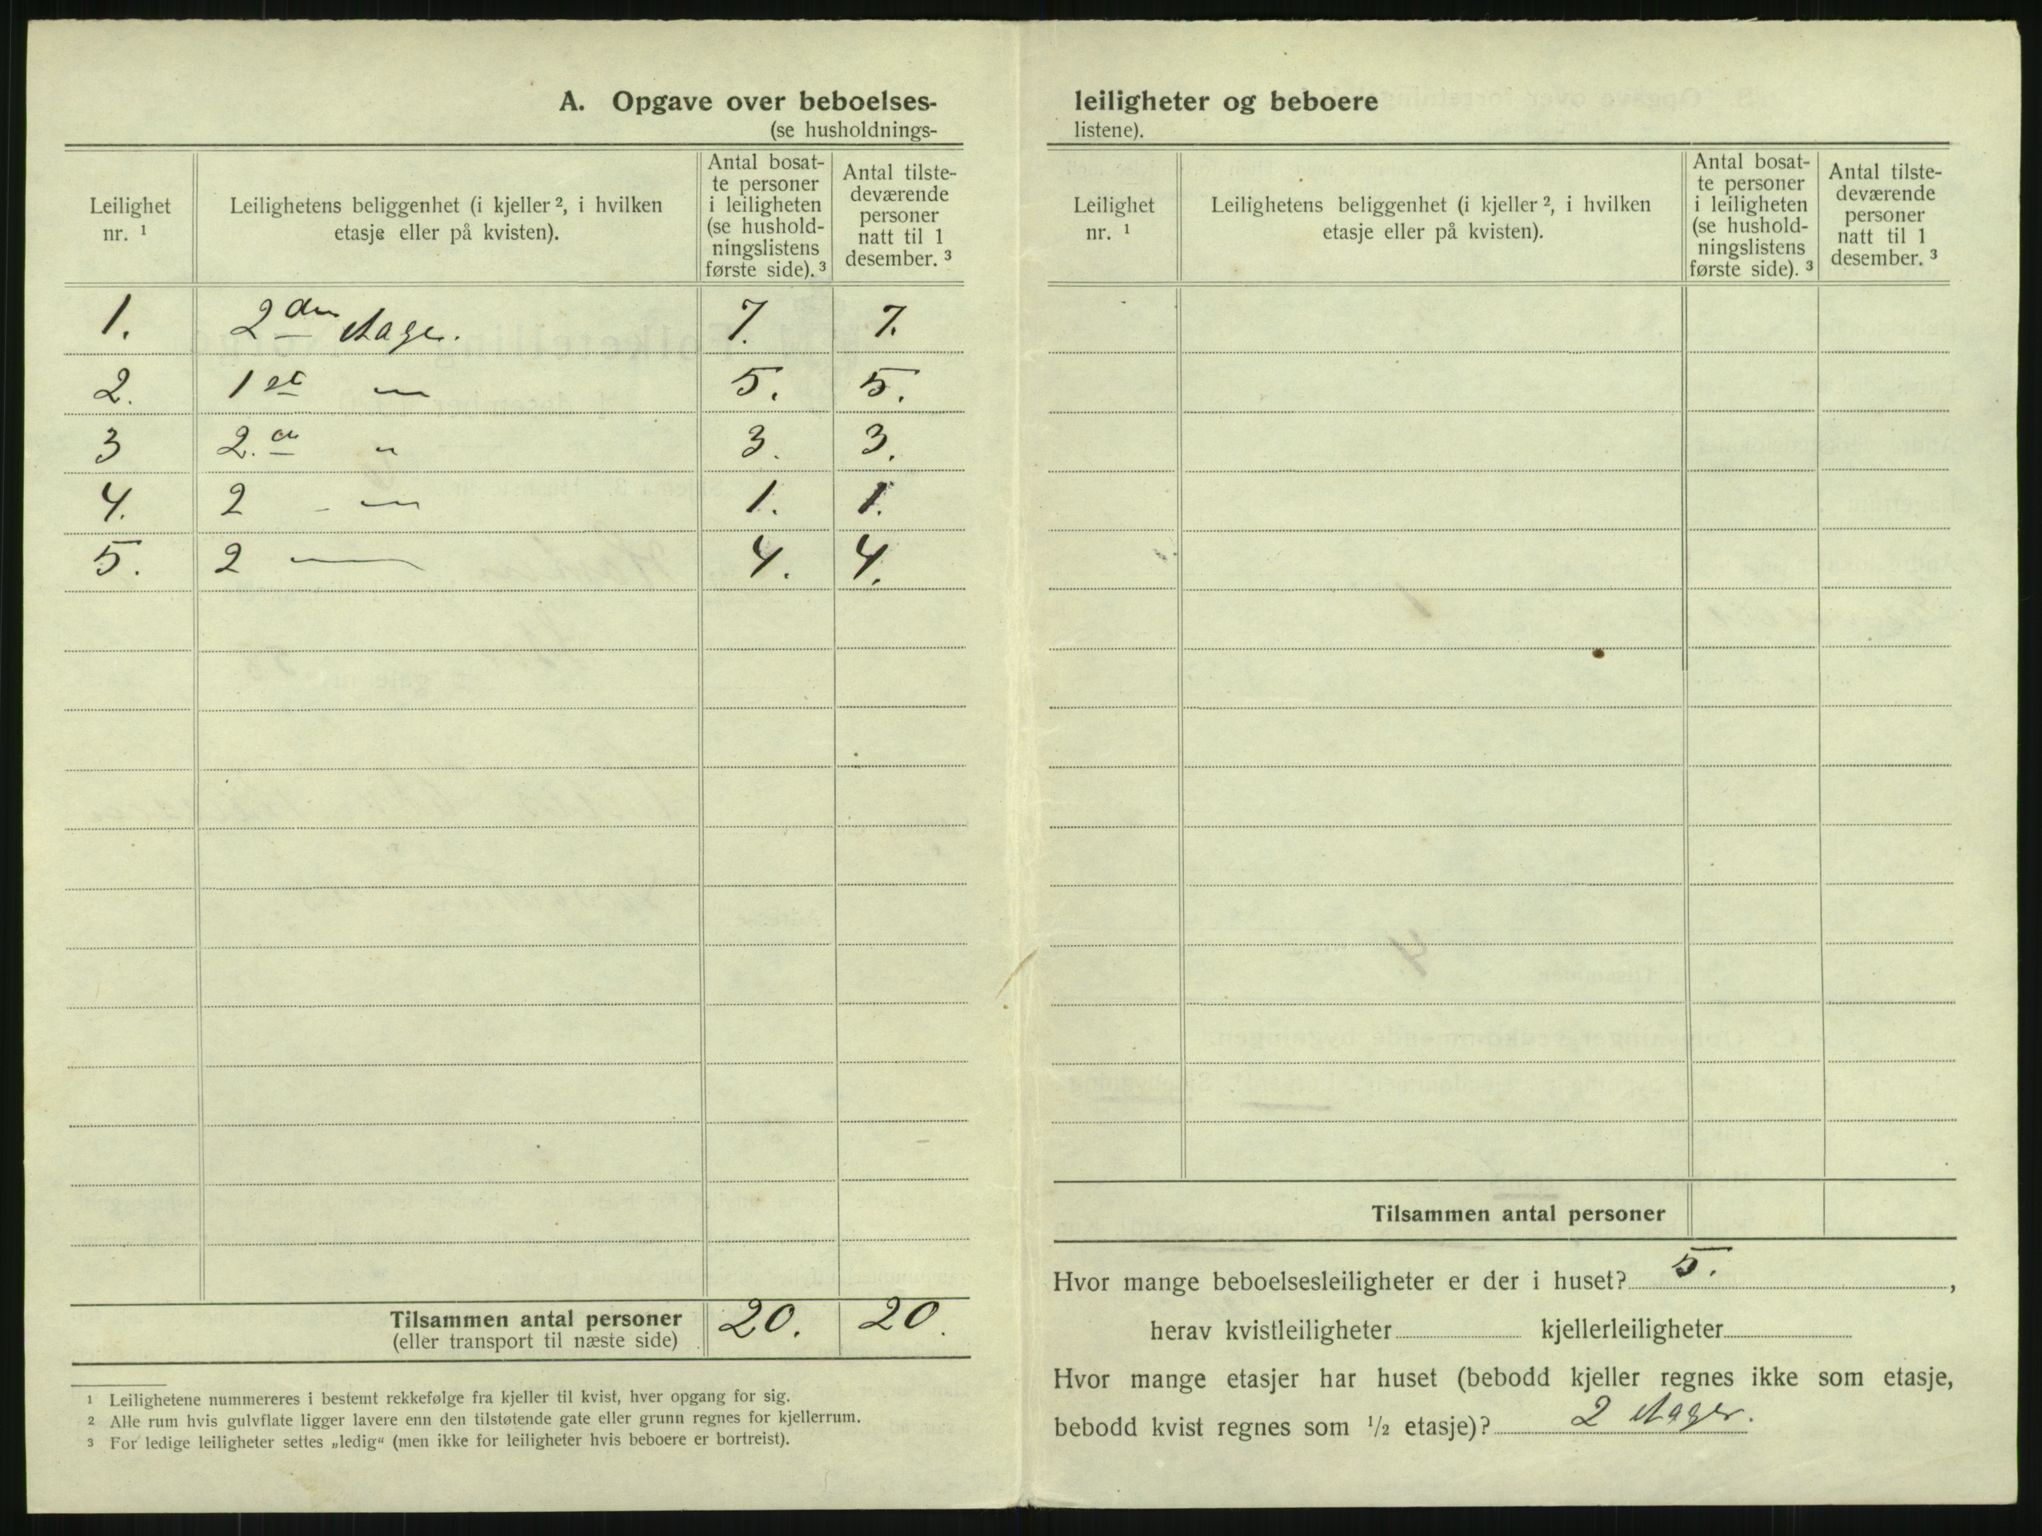 A. Opgave over beboelses-
(se husholdnings-
Leilighet nr. ¹
Leilighetens beliggenhet (i kjeller ², i hvilken etasje eller på kvisten).
Antal bosat-
te personer
i leiligheten
(se hushold-
ningslistens
første side). ³
Antal tilste-
deværende
personer
natt til 1
desember. ³
1. 2den etage. 7. 7.
2. 1st — 5. 5.
3 2.den " 3. 3.
4. 2 - — 1. 1.
5. 2 — 4. 4.
Tilsammen antal personer 20. 20.
(eller transport til næste side)
¹ Leilighetene nummereres i bestemt rekkefølge fra kjeller til kvist, hver opgang for sig.
² Alle rum hvis gulvflate ligger lavere enn den tilstøtende gate eller grunn regnes for kjellerrum.
³ For ledige leiligheter settes „ledig“ (men ikke for leiligheter hvis beboere er bortreist).
leiligheter og beboere
listene).
Leilighet nr. ¹
Leilighetens beliggenhet (i kjeller ², i hvilken etasje eller på kvisten).
Antal bosat-
te personer
i leiligheten
(se hushold-
ningslistens
første side). ³
Antal tilste-
deværende
personer
natt til 1
desember. ³
Tilsammen antal personer
Hvor mange beboelsesleiligheter er der i huset? 5. ,
herav kvistleiligheter kjellerleiligheter
Hvor mange etasjer har huset (bebodd kjeller regnes ikke som etasje,
bebodd kvist regnes som ½ etasje)? 2 etager.